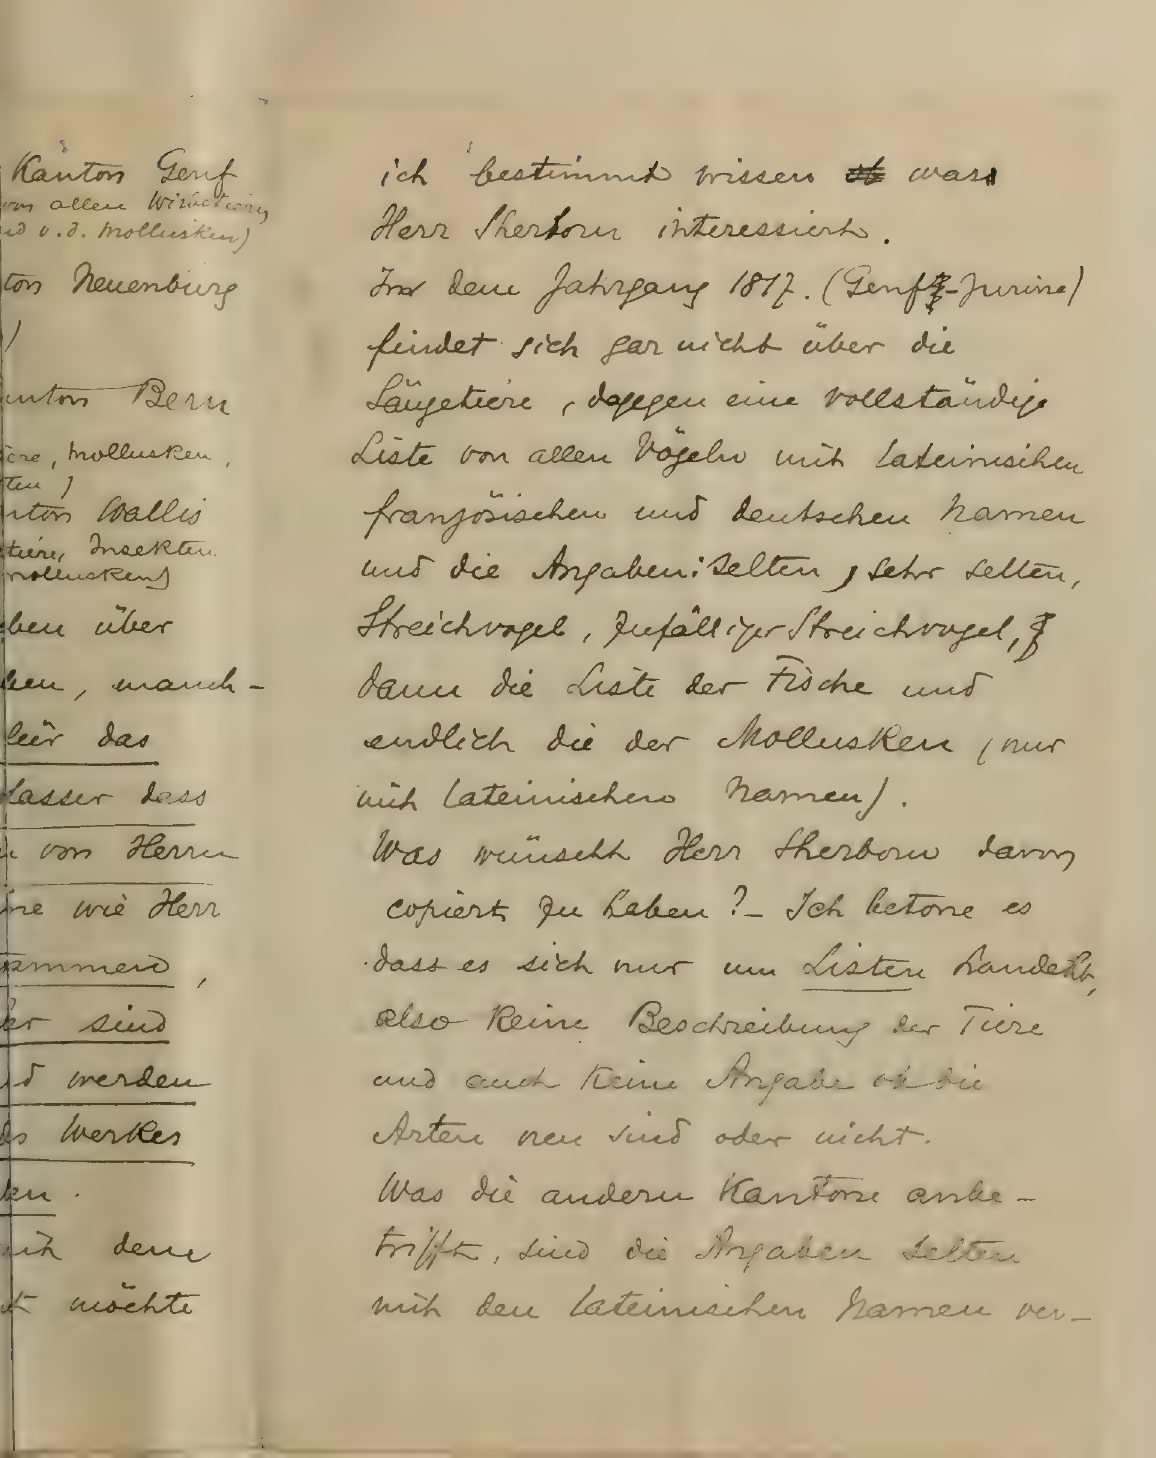 Kanton Genf
von allen Wirbeltieren
und v. d. Mollusken)
ton Neuenburg
)
anton Bern
iere, Mollusken,
ten)
nton Wallis
tiere, Insekten
mollusken)
ben über
ken, manch-
das
lasser dass
von Herrn
ine wie Herr
ammen,
er sind
d werden
des Werkes
ken.
mit dem
möchte
ich bestimmt wissen ob was
Herr Sherborn interessiert.
In dem Jahrgang 1817. (Genf-Jurine)
findet sich gar nicht über die
Säugetiere, dagegen eine vollständige
Liste von allen Vögeln mit lateinischen
französischen und deutschen Namen
und die Angaben: selten, sehr selten,
Streichvogel, zufälliger Streichvogel,
dann die Liste der Fische und
endlich die der Mollusken (nur
mit lateinischen Namen).
Was wünscht Herr Sherborn davon
copiert zu haben? - Ich betone es
dass es sich nur um Listen handelt,
also keine Beschreibung der Tiere
und auch keine Angabe ob die
Arten neu sind oder nicht.
Was die andern Kantone anbe-
trifft, sind die Angaben selten
mit den lateinischen Namen ver-